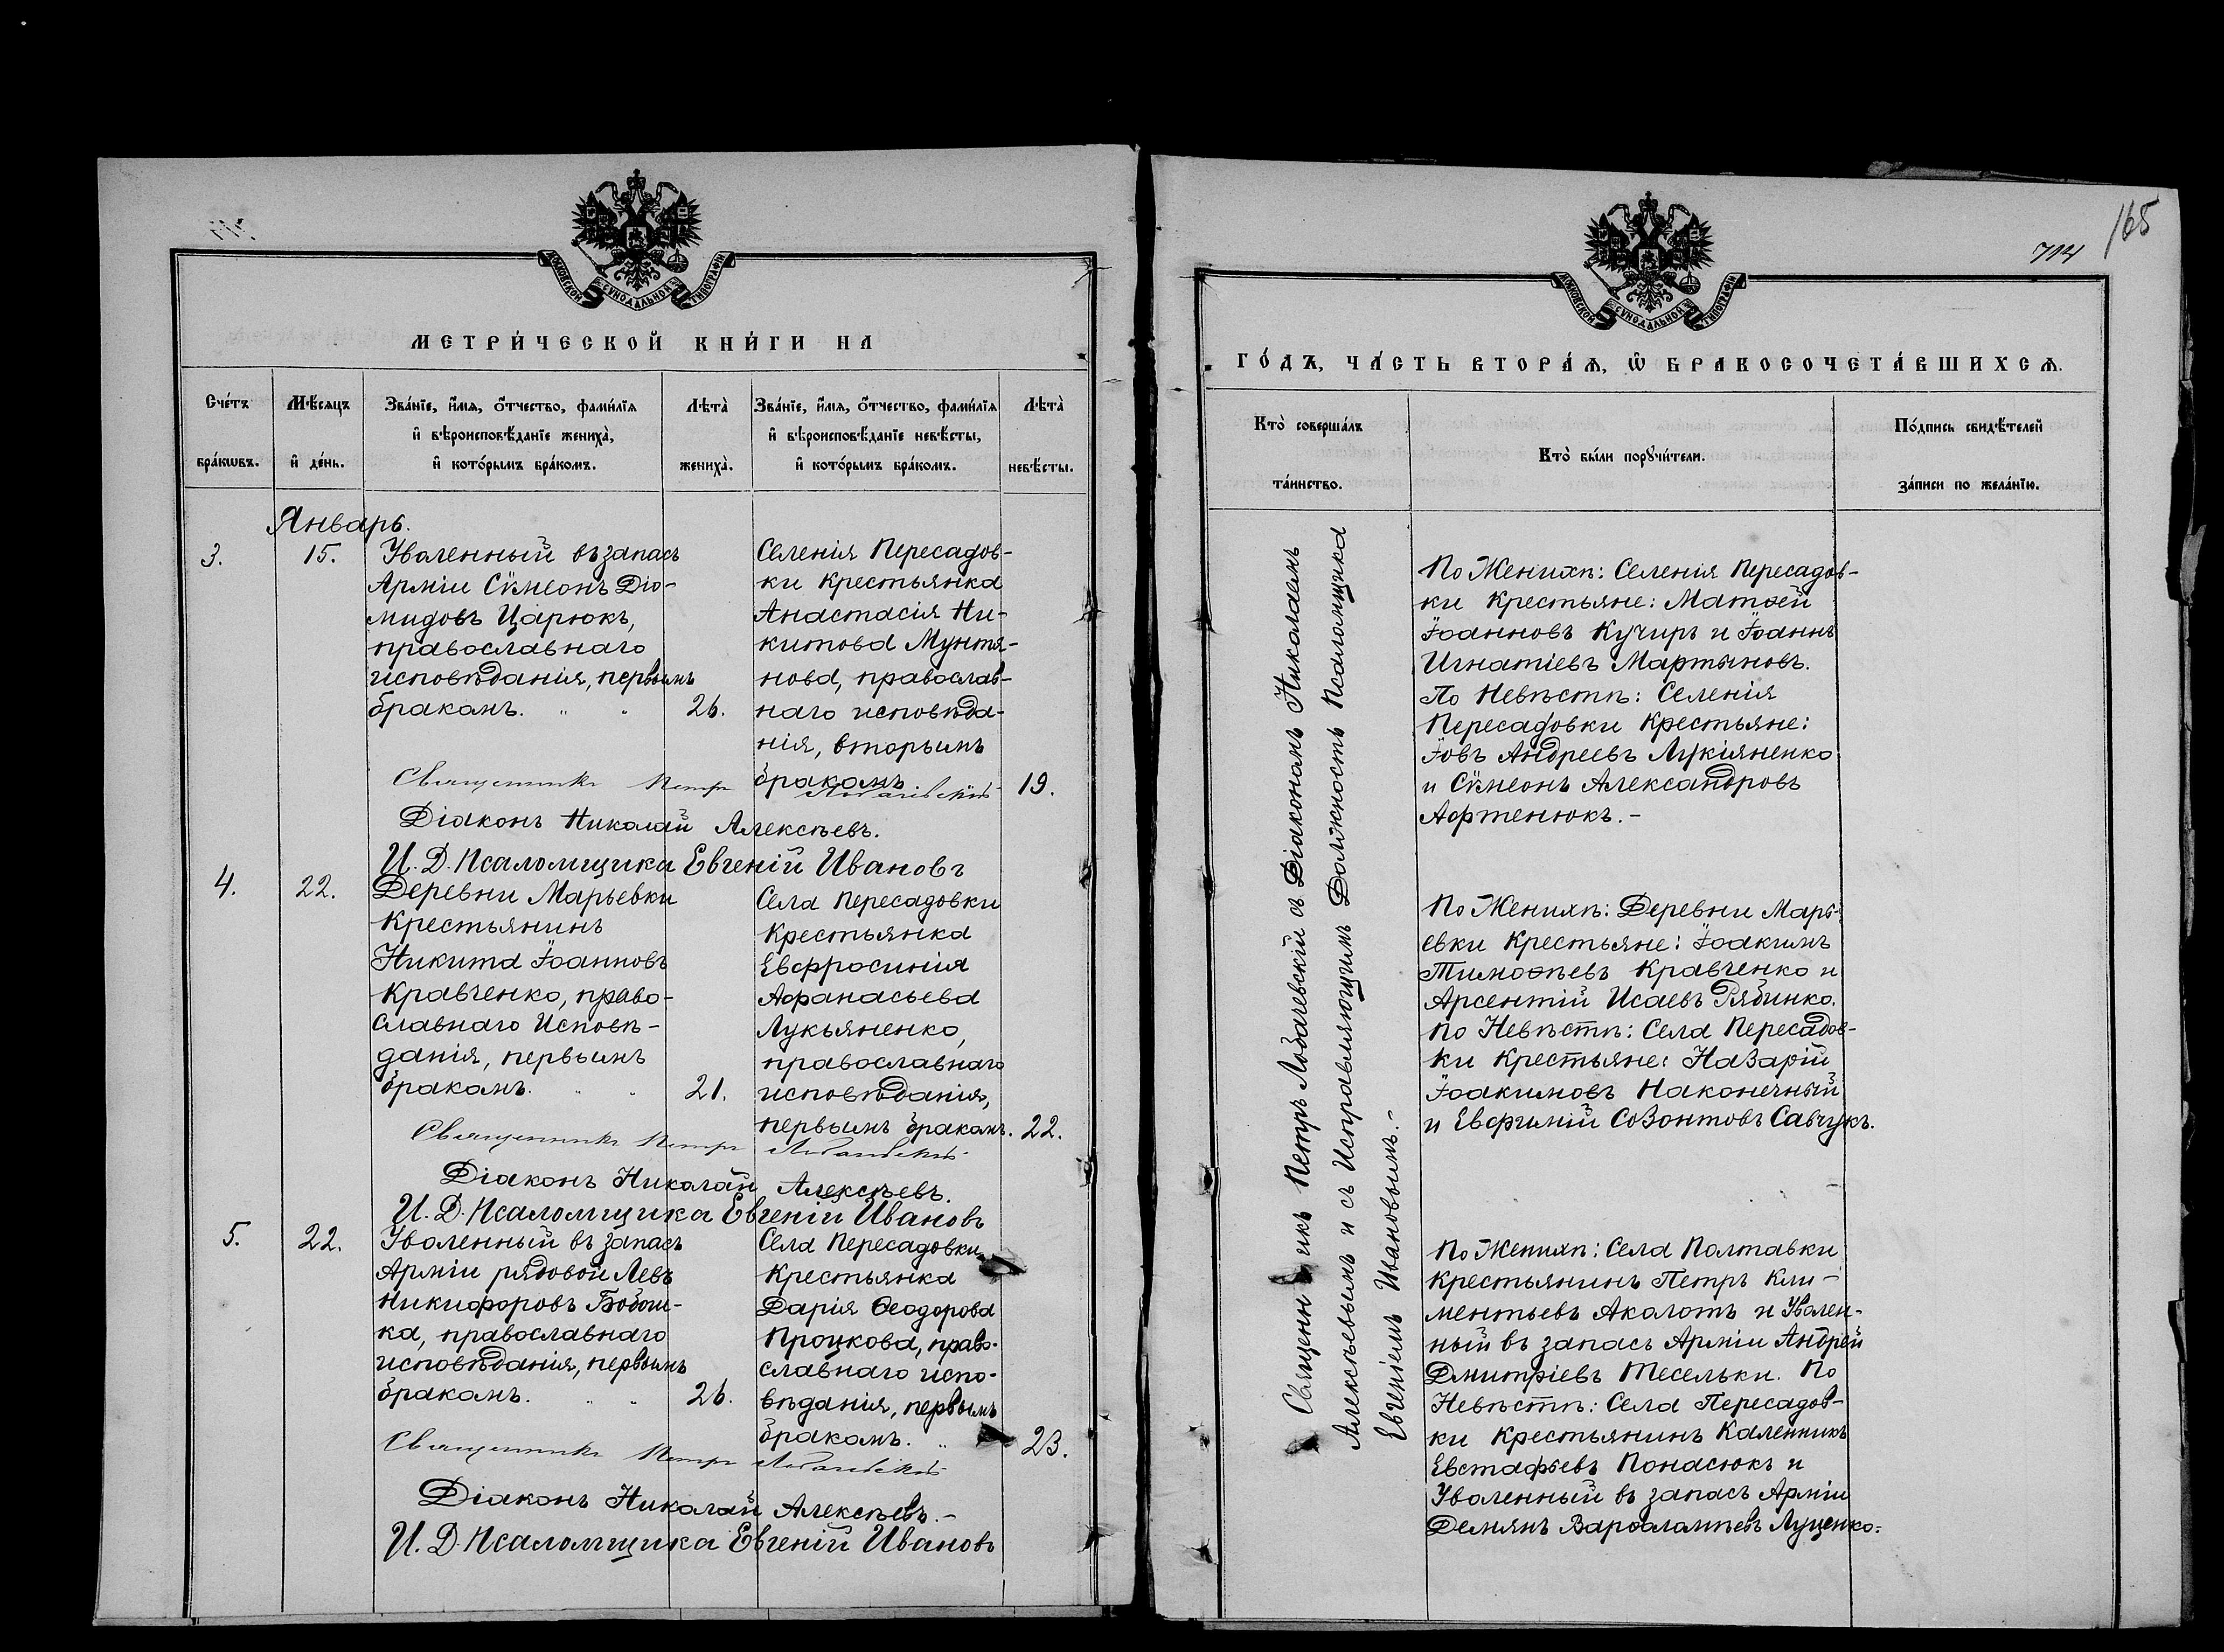 МОСКОВСКОЙ СѴНОДАЛЬНОЙ ТИПОГРАФІИ
МЕТРИ́ЧЕСКОЙ КНИ́ГИ НА
Сче́тъ
бра́кѡвъ.
Мѣ́сяцъ
и҆ де́нь.
Зва́нїе, и҆́мѧ, ѻ҆́тчество, фами́лїѧ
и҆ вѣроисповѣ́данїе жениха̀,
и҆ кото́рымъ бра́комъ.
Лѣта̀
жениха̀.
Зва́нїе, и҆́мѧ, ѻ҆́тчество, фами́лїѧ
и҆ вѣроисповѣ́данїе невѣ́сты,
и҆ кото́рымъ бра́комъ.
Лѣта̀
невѣ́сты.
Январь.
3.
15.
Уволенный въ запасъ
Арміи Сѷмеонъ Діо-
мидовъ Царюкъ,
православнаго
исповѣданія, первымъ
бракомъ. " "
26.
Селенія Пересадов-
ки Крестьянка
Анастасія Ни-
китова Мунтя-
нова, православ-
наго исповѣда-
нія, вторымъ
бракомъ
19.
Священникъ Петръ Лобачевскій
Діаконъ Николай Алексѣевъ.
И. Д. Псаломщика Евгеній Ивановъ
4.
22.
Деревни Марьевки
Крестьянинъ
Никита Іоанновъ
Кравченко, право-
славнаго Исповѣ-
данія, первымъ
бракомъ. " "
21.
Села Пересадовки
Крестьянка
Евфросинія
Афанасьева
Лукьяненко,
православнаго
исповѣданія,
первымъ бракомъ.
22.
Священникъ Петръ Лобачевскій
Діаконъ Николай Алексѣевъ.
И. Д. Псаломщика Евгеній Ивановъ
5.
22.
Уволенный въ запасъ
Арміи рядовой Левъ
Никифоровъ Бобош-
ка, православнаго
исповѣданія, первымъ
бракомъ. " "
26.
Села Пересадовки
Крестьянка
Дарія Ѳеодорова
Процкова, право-
славнаго испо-
вѣданія, первымъ
бракомъ. "
23.
Священникъ Петръ Лобачевскій
Діаконъ Николай Алексѣевъ.-
И. Д. Псаломщика Евгеній Ивановъ
165
714
МОСКОВСКОЙ СѴНОДАЛЬНОЙ ТИПОГРАФІИ
ГО́ДЪ, ЧА́СТЬ ВТОРА́Ѧ, Ѽ БРАКОСОЧЕТА́ВШИХСѦ.
Кто̀ соверша́лъ
та́инство.
Кто̀ бы́ли порꙋчи́тели.
По́дпись свидѣ́телей
за́писи по жела́нїю.
Священникъ Петръ Лобачевскій съ Діакономъ Николаемъ
Алексѣевымъ и съ Исправляющимъ Должность Псаломщика
Евгеніемъ Ивановымъ.-
По Женихѣ: Селенія Пересадов-
ки Крестьяне: Матѳей
Іоанновъ Кучиръ и Іоаннъ
Игнатіевъ Мартыновъ.
По Невѣстѣ: Селенія
Пересадовки Крестьяне:
Іовъ Андреевъ Лукіяненко
и Сѷмеонъ Александровъ
Афтенюкъ.-
По Женихѣ: Деревни Марь-
евки Крестьяне: Іоакимъ
Тимоѳѣевъ Кравченко и
Арсентій Исаевъ Рябинко.
По Невѣстѣ: Села Пересадов-
ки Крестьяне: Назарій
Іоакимовъ Наконечный
и Евфимій Созонтовъ Савчукъ.
По Женихѣ: Села Полтавки
Крестьянинъ Петръ Кли-
ментьевъ Акалотъ и Уволен-
ный въ запасъ Арміи Андрей
Дмитріевъ Тесельки. По
Невѣстѣ: Села Пересадов-
ки Крестьянинъ Каленникъ
Евстафьевъ Понасюкъ и
Уволенный въ запасъ Арміи
Демянъ Варѳаламѣевъ Луценко.